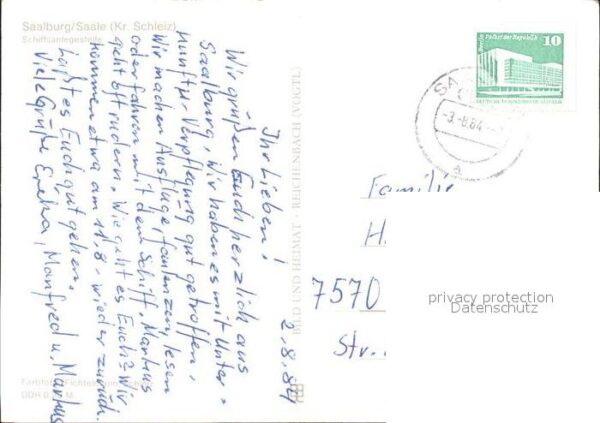 Saalburg/Saale (Kr. Schleiz)
Schiffsanlegestelle
Ihr Lieben!
Wir grüßen Euch herzlich aus
Saalburg. Wir haben es mit Unter-
kunft u. Verpflegung gut getroffen.
Wir machen Ausflüge, faulenzen, lesen
oder fahren mit dem Schiff. Markus
geht oft rudern. Wie geht es Euch? Wir
kommen etwa am 11.8. wieder zurück.
Laßt es Euch gut gehen.
Viele Grüße Erika, Manfred u. Markus
2.8.84
BILD UND HEIMAT · REICHENBACH (VOGTL)
Berlin, Palast der Republik
10
DEUTSCHE DEMOKRATISCHE REPUBLIK
-3.-8.84
a
Familie
H
7570
Str.
privacy protection
Datenschutz